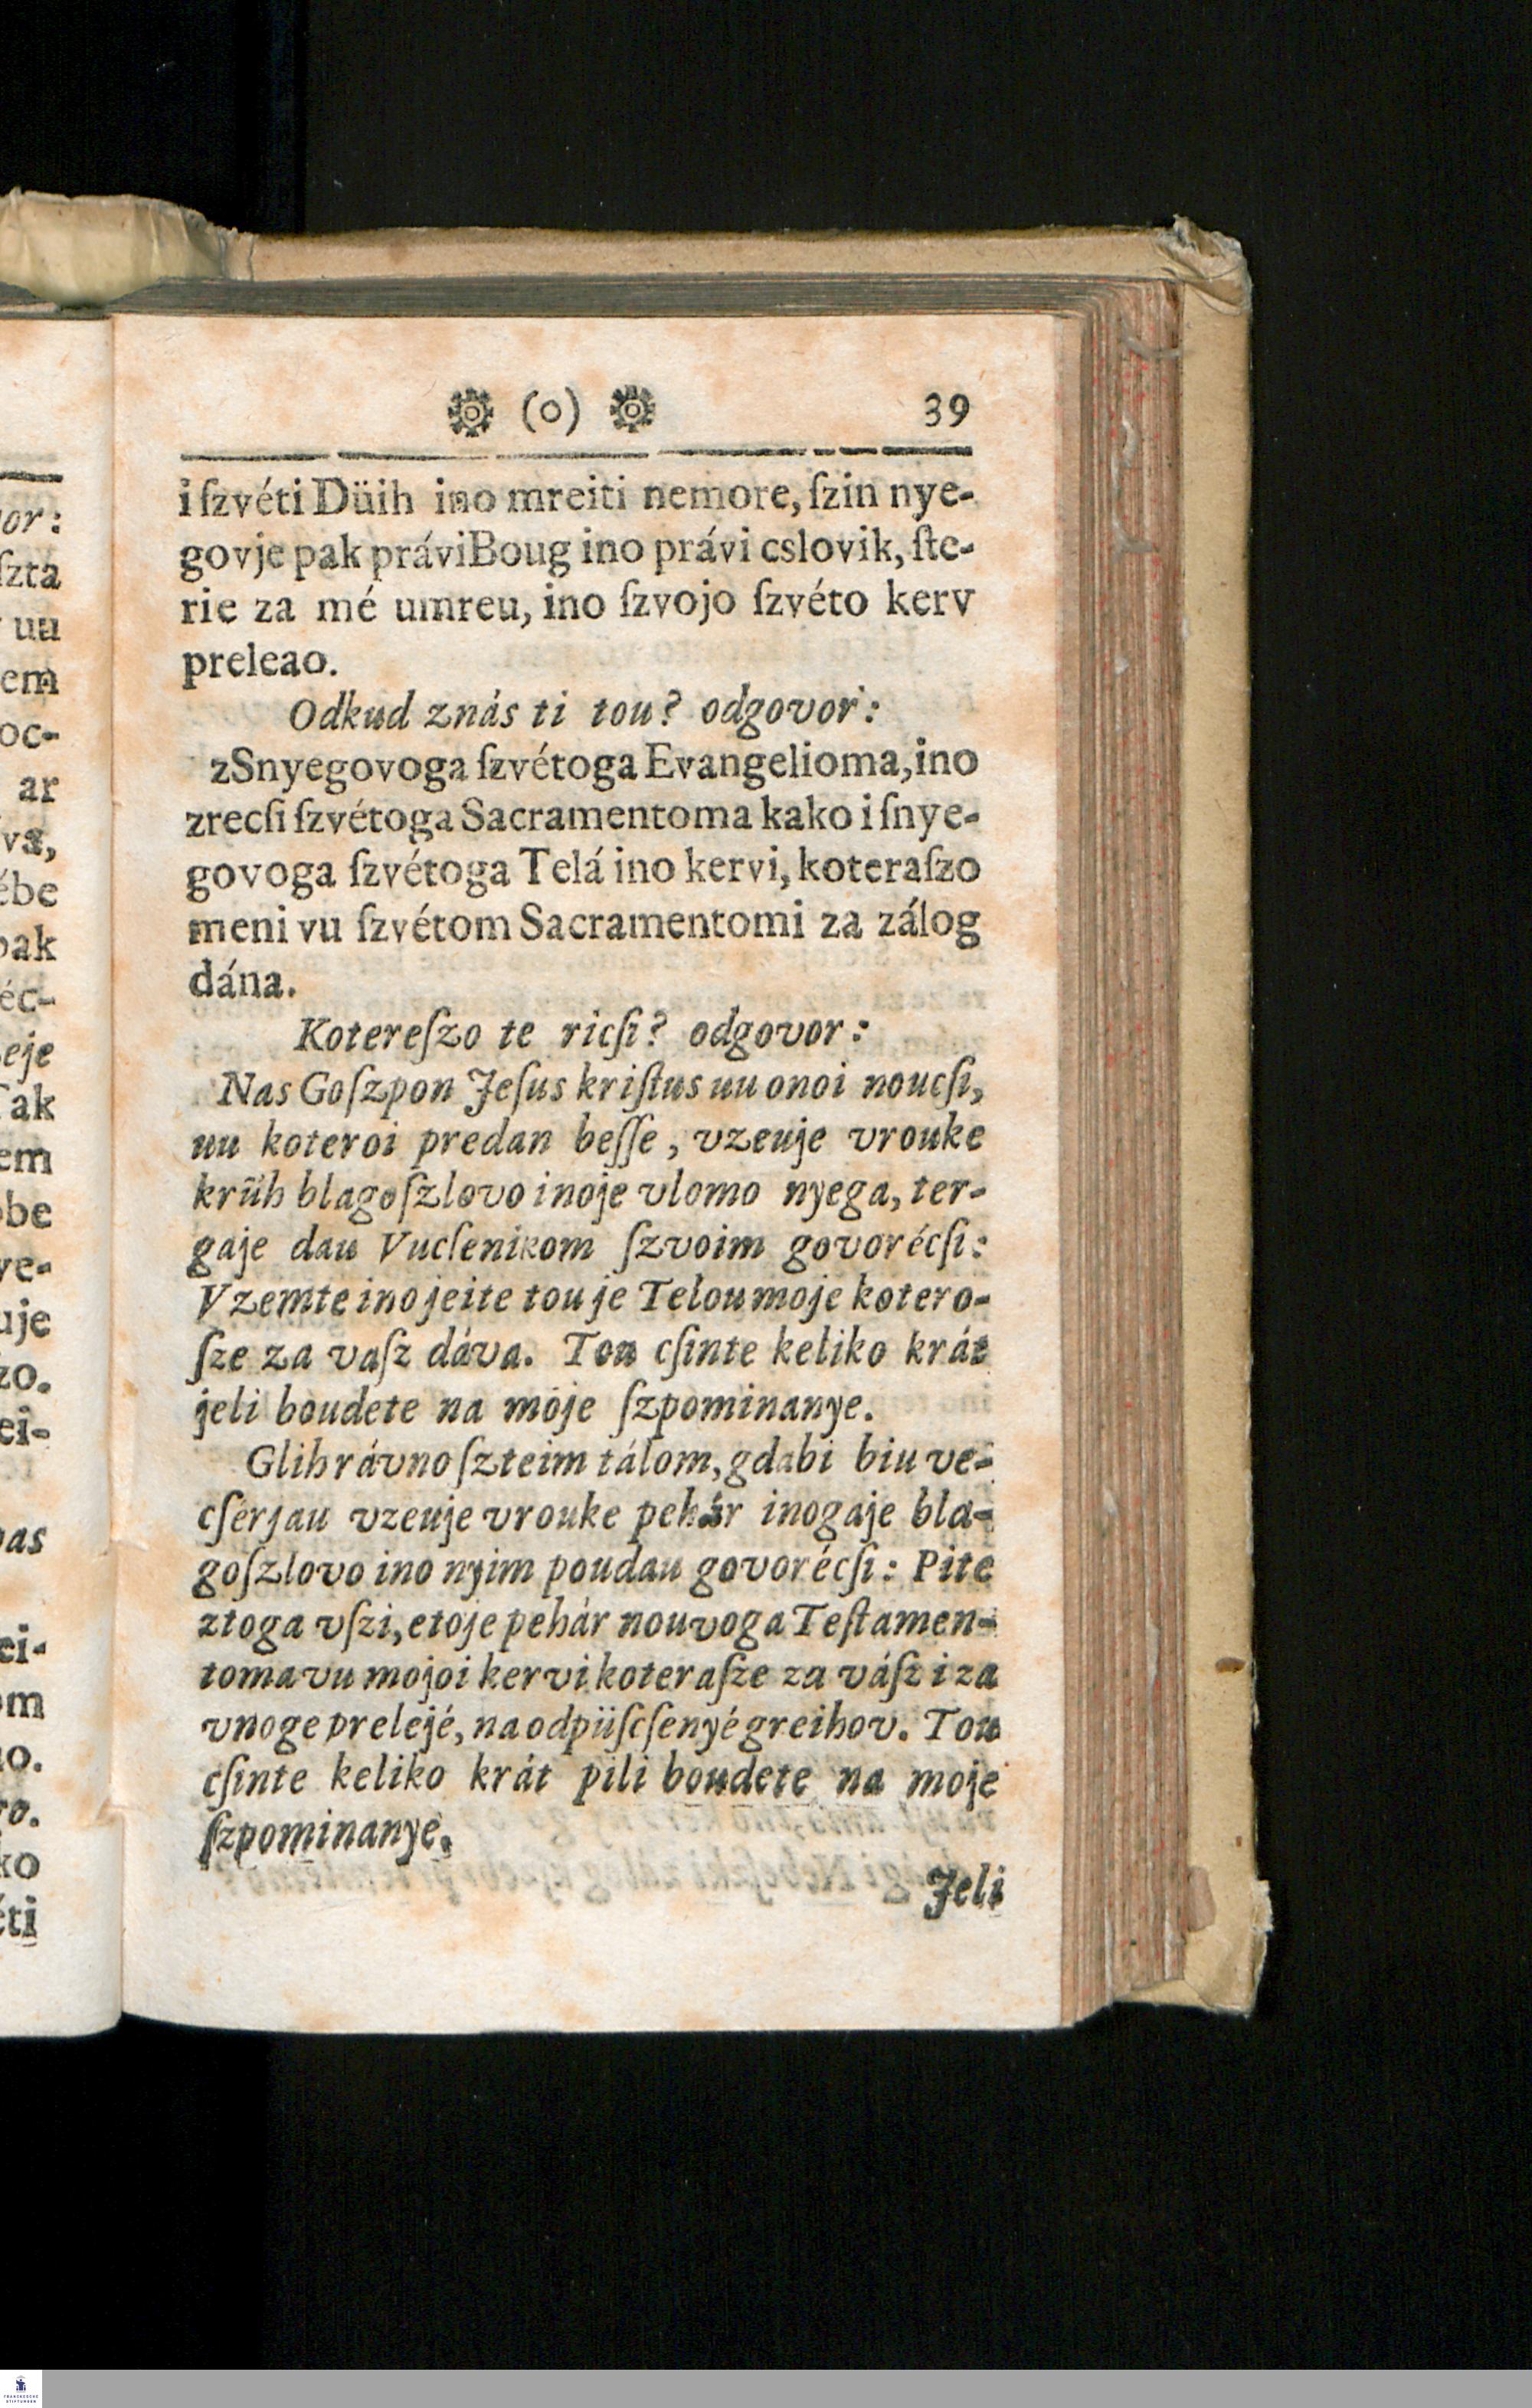 (o) 39
i ſzvéti Düih ino mreiti nemore, ſzin nye-
govje pak práviBoug ino právi cslovik, ſte-
rie za mé umreu, ino ſzvojo ſzvéto kerv
preleao.
Odkud znás ti tou? odgovor:
zSnyegovoga ſzvétoga Evangelioma, ino
zrecſi ſzvétoga Sacramentoma kako i ſnye-
govoga ſzvétoga Telá ino kervi, koteraſzo
meni vu ſzvétom Sacramentomi za zálog
dána.
Kotereſzo te ricſi? odgovor:
Nas Goſzpon Jeſus kriſtus uu onoi noucſi,
uu koteroi predan beſſe, vzeuje vrouke
krüh blagoſzlovo inoje vlomo nyega, ter-
gaje dau Vucſenikom ſzvoim govorécſi:
Vzemte ino jeite tou je Telou moje kotero-
ſze za vaſz dáva. Tou cſinte keliko krát
jeli boudete na moje ſzpominanye.
Glih rávno ſzteim tálom, gdabi biu ve-
cſerjau vzeuje vrouke pehár inogaje bla-
goſzlovo ino nyim poudau govorécſi: Pite
ztoga vſzi, etoje pehár nouvoga Teſtamen-
toma vu mojoi kervi koteraſze za váſz i za
vnoge prelejé, na odpüſcſenyé greihov. Tou
cſinte keliko krát pili boudete na moje
ſzpominanye.
Jeli